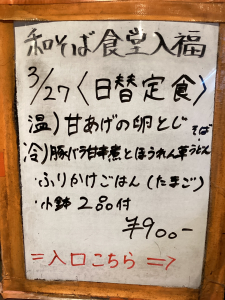 和そば食堂入福
3/27〈日替定食〉
温)甘あげの卵とじ そば
冷)豚バラ甘辛煮とほうれん草うどん
・ふりかけごはん(たまご)
・小鉢2品付
¥900-
=入口こちら=>